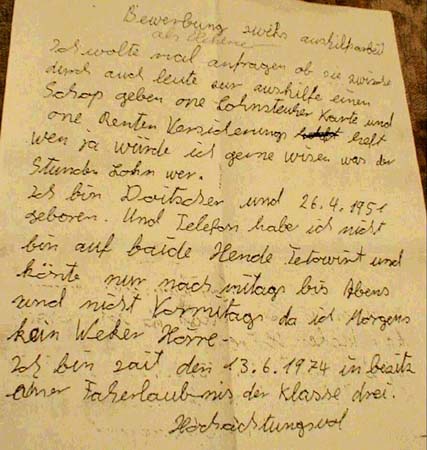 Bewerbung zwiks aushilfsarbeit
als
Ich wolte mal anfragen ob sie zwische
durch auch leute zur aushilfe einen
Schop geben one Lohnsteuher Karte und
one Renten Versicherungs heft
wen ja würde ich gerne wisen was der
Stunden Lohn wer.
Ich bin Doitscher und 26.4.1951
geboren. Und Telefon habe ich nicht
bin auf baide Hende Tetowirt und
könte nur nach mitags bis Abens
und nicht Vormitags da ich Morgens
kein Weker Horre.
Ich bin zait den 13.6.1974 in besitz
ainer Faherlaub-nis der Klasse drei.
Hochachtungsvol